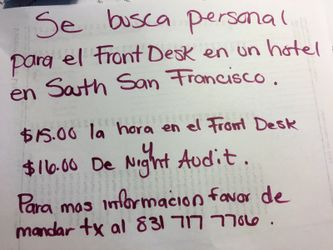 Se busca personal
para el Front Desk en un hotel
en South San Francisco.
$15.00 la hora en el Front Desk
y
$16.00 De Night Audit.
Para mas informacion favor de
mandar tx al 831 717 7706.